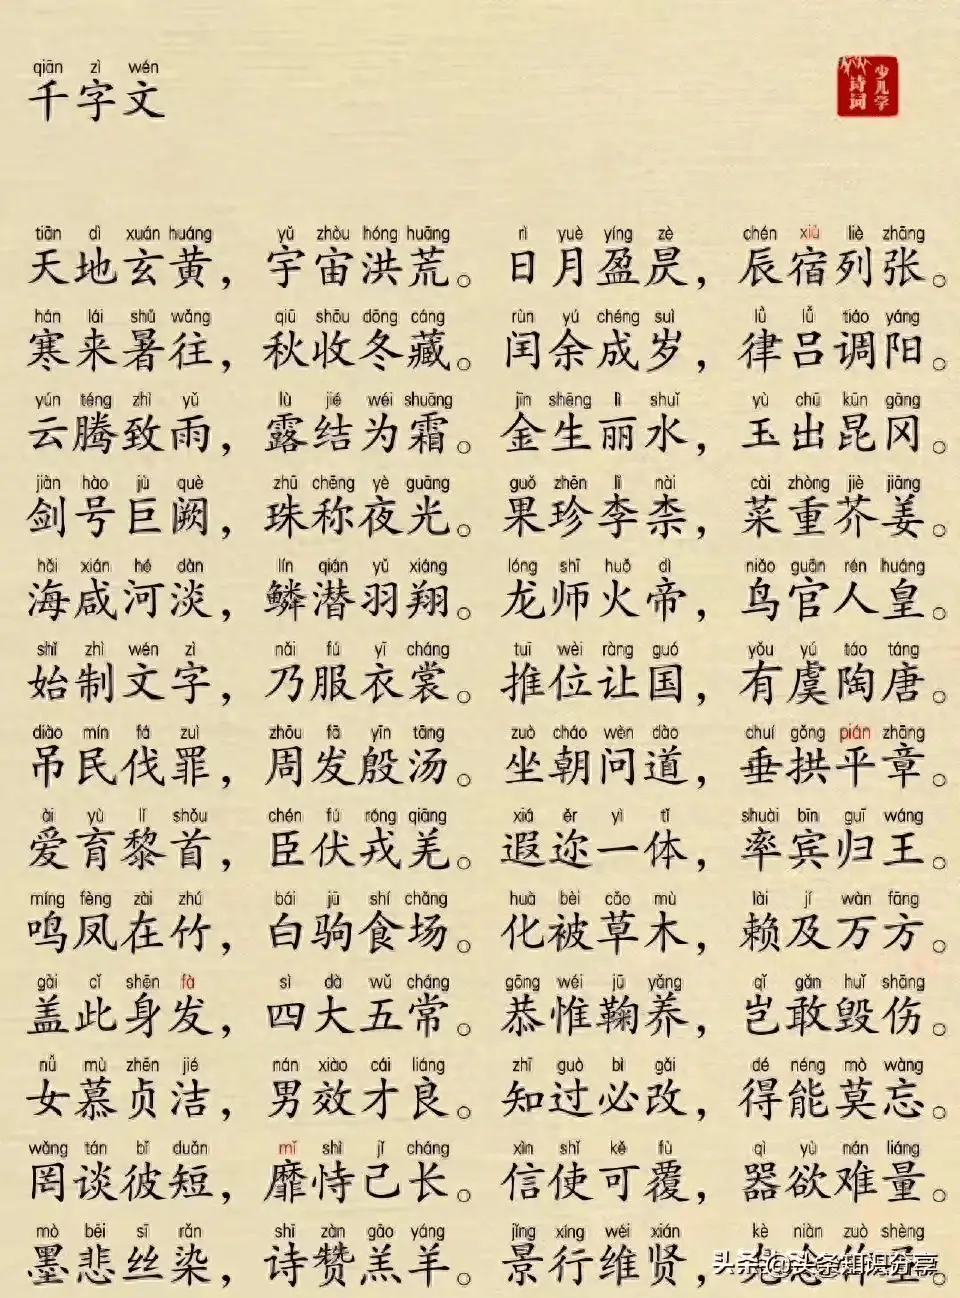 qiān zì wén
千字文
少儿学
诗词
tiān dì xuán huáng yǔ zhòu hóng huāng rì yuè yíng zè chén xiù liè zhāng
天地玄黄，宇宙洪荒。日月盈昃，辰宿列张。
hán lái shǔ wǎng qiū shōu dōng cáng rùn yú chéng suì lǜ lǚ tiáo yáng
寒来暑往，秋收冬藏。闰余成岁，律吕调阳。
yún téng zhì yǔ lù jié wéi shuāng jīn shēng lì shuǐ yù chū kūn gāng
云腾致雨，露结为霜。金生丽水，玉出昆冈。
jiàn hào jù què zhū chēng yè guāng guǒ zhēn lǐ nài cài zhòng jiè jiāng
剑号巨阙，珠称夜光。果珍李柰，菜重芥姜。
hǎi xián hé dàn lín qián yǔ xiáng lóng shī huǒ dì niǎo guān rén huáng
海咸河淡，鳞潜羽翔。龙师火帝，鸟官人皇。
shǐ zhì wén zì nǎi fú yī cháng tuī wèi ràng guó yǒu yú táo táng
始制文字，乃服衣裳。推位让国，有虞陶唐。
diào mín fá zuì zhōu fā yīn tāng zuò cháo wèn dào chuí gǒng pián zhāng
吊民伐罪，周发殷汤。坐朝问道，垂拱平章。
ài yù lí shǒu chén fú róng qiāng xiá ěr yì tǐ shuài bīn guī wáng
爱育黎首，臣伏戎羌。遐迩一体，率宾归王。
míng fèng zài zhú bái jū shí chǎng huà bèi cǎo mù lài jí wàn fāng
鸣凤在竹，白驹食场。化被草木，赖及万方。
gài cǐ shēn fà sì dà wǔ cháng gōng wéi jū yǎng qǐ gǎn huǐ shāng
盖此身发，四大五常。恭惟鞠养，岂敢毁伤。
nǚ mù zhēn jié nán xiào cái liáng zhī guò bì gǎi dé néng mò wàng
女慕贞洁，男效才良。知过必改，得能莫忘。
wǎng tán bǐ duǎn mǐ shì jǐ cháng xìn shǐ kě fù qì yù nán liáng
罔谈彼短，靡恃己长。信使可覆，器欲难量。
mò bēi sī rǎn shī zàn gāo yáng jǐng xíng wéi xián kè niàn zuò shèng
墨悲丝染，诗赞羔羊。景行维贤，克念作圣
头条@头条知识分享